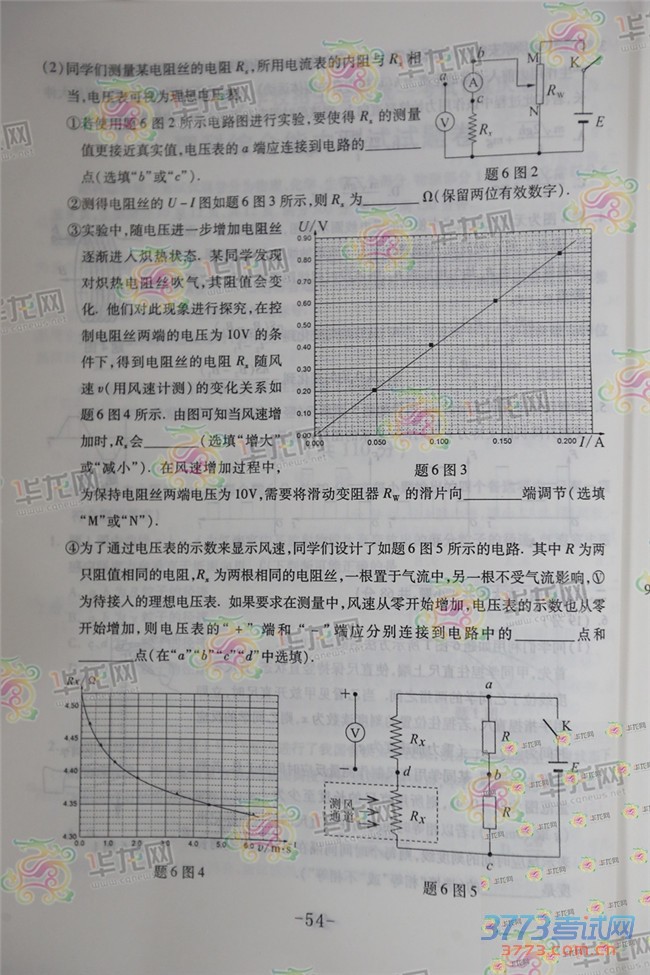 (2)同学们测量某电阻丝的电阻 Rx,所用电流表的内阻与 Rx 相
当,电压表可视为理想电压表.
①若使用题6图2所示电路图进行实验,要使得 Rx 的测量
值更接近真实值,电压表的 a 端应连接到电路的
点(选填“b”或“c”).
a
b
c
A
V
Rx
M
N
RW
K
E
题6图2
②测得电阻丝的 U-I 图如题6图3所示,则 Rx 为 Ω(保留两位有效数字).
③实验中,随电压进一步增加电阻丝
逐渐进入炽热状态. 某同学发现
对炽热电阻丝吹气,其阻值会变
化. 他们对此现象进行探究,在控
制电阻丝两端的电压为10V的条
件下,得到电阻丝的电阻 Rx 随风
速v(用风速计测)的变化关系如
题6图4所示. 由图可知当风速增
加时,Rx会 (选填“增大”
或“减小”). 在风速增加过程中,
U/V
0.90
0.80
0.70
0.60
0.50
0.40
0.30
0.20
0.10
0.00
0.000
0.050
0.100
0.150
0.200
I/A
题6图3
为保持电阻丝两端电压为10V,需要将滑动变阻器 RW 的滑片向 端调节(选填
“M”或“N”).
④为了通过电压表的示数来显示风速,同学们设计了如题6图5所示的电路. 其中 R 为两
只阻值相同的电阻,Rx 为两根相同的电阻丝,一根置于气流中,另一根不受气流影响,Ⓥ
为待接入的理想电压表. 如果要求在测量中,风速从零开始增加,电压表的示数也从零
开始增加,则电压表的“+”端和“-”端应分别连接到电路中的 点和
点(在“a”“b”“c”“d”中选填).
Rx/Ω
4.50
4.45
4.40
4.35
4.30
0.0
1.0
2.0
3.0
4.0
5.0
6.0
v/m·s
题6图4
+
V
-
RX
d
测风
通道
RX
a
R
b
R
c
K
E
题6图5
-54-
华龙网
www.cqnews.net
3773考试网
3773.com.cn